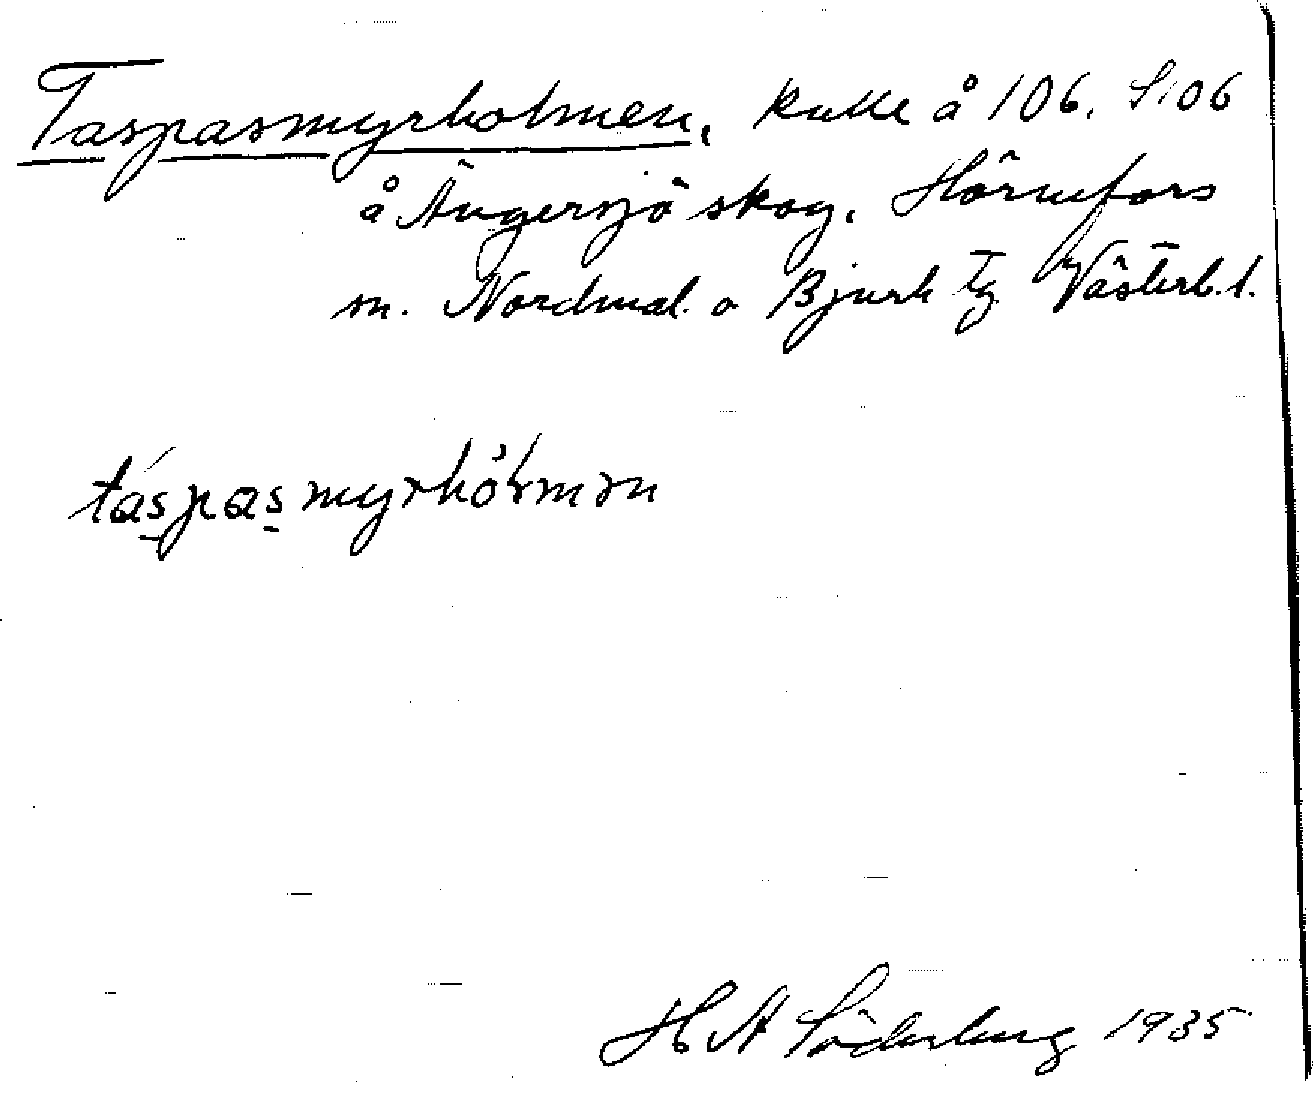 Taspasmyrholmen, kulle å 106. S106
å Ängersjö skog, Hörnefors
sn. Nordmal. o Bjurh tg Västerb.l.
táspas myrhólmən
H A Söderberg 1935